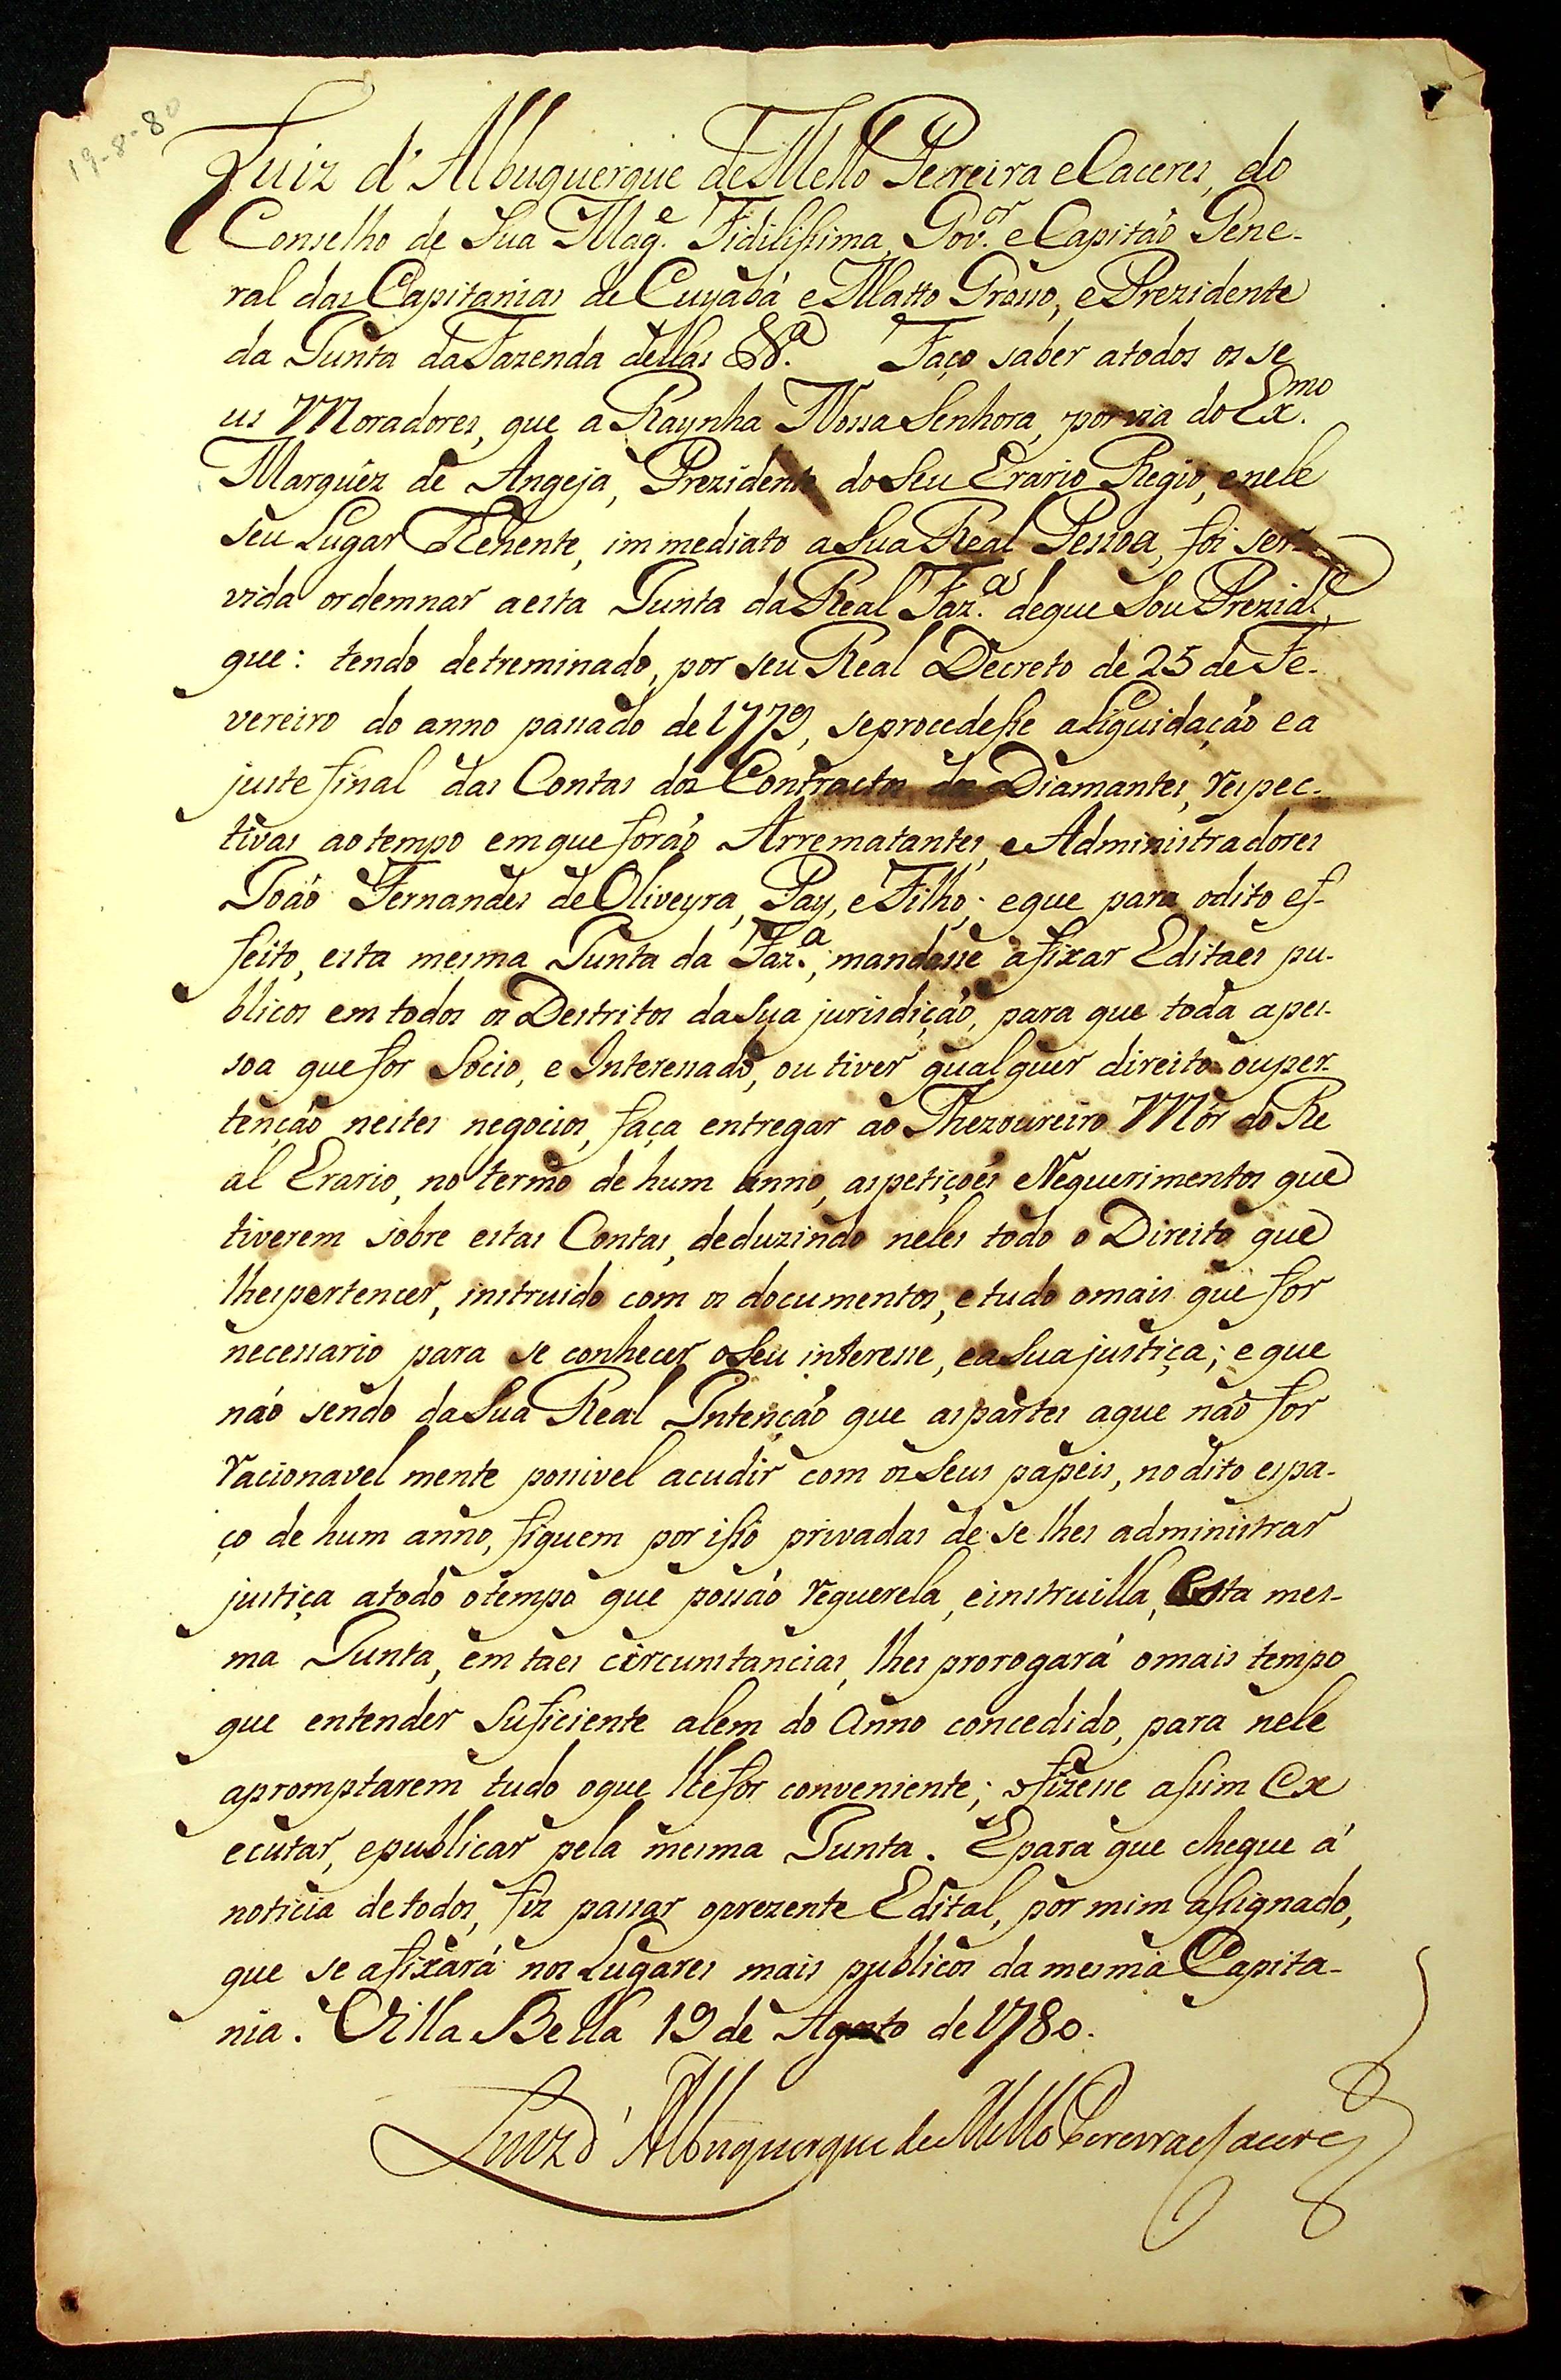 19-8-80
Luiz d'Albuquerque de Mello Pereira e Caceres, do
Conselho de Sua Mag.e Fidilissima, Gov.or e Capitaõ Gene-
ral das Capitanias de Cuyabá e Matto Grosso, e Prezidente
da Junta da Fazenda dellas &.a Faço saber a todos os se
us Moradores, que a Raynha Nossa Senhora, por via do Ex.mo
Marquêz de Angeja, Prezidente do Seu Erario Regio, e nele
seu Lugar Tenente, immediato a Sua Real Pessoa, foi ser-
vida ordemnar a esta Junta da Real Faz.as de que Sou Prezid.e,
que: tendo detreminado, por seu Real Decreto de 25 de Fe-
vereiro do anno passado de 1779, se procedesse a liquidaçaõ e a
juste final das Contas dos Contractos dos Diamantes, respec-
tivas ao tempo em que foraõ Arrematantes, e Administradores
Joaõ Fernandes de Oliveyra, Pay, e Filho; e que para o dito ef-
feito, esta mesma Junta da Faz.a, mandasse afixar Editaes pu-
blicos em todos os Destritos da Sua jurisdiçaõ, para que toda a pes-
soa que for Socio, e Interessado, ou tiver qualquer direito ou per-
tençaõ nestes negocios, faça entregar ao Thezoureiro Mór do Re
al Erario, no termo de hum anno, as petiçoẽs e Requerimentos que
tiverem sobre estas Contas, deduzindo neles todo o Direito que
lhes pertencer, instruido com os documentos, e tudo o mais que for
necessario para se conhecer o Seu interesse, e a Sua justiça; e que
naõ sendo da Sua Real Intençaõ que as partes a que naõ for
racionavel mente possivel acudir com os Seus papeis, no dito espa-
ço de hum anno, fiquem por isso privadas de se lhes administrar
justiça a todo o tempo que possaõ requerela, e instruilla, Esta mes-
ma Junta, em taes circumstancias, lhes prorogará o mais tempo
que entender suficiente alem do Anno concedido, para nele
apromptarem tudo o que lhe for conveniente; o fizesse assim Ex
ecutar, e publicar pela mesma Junta. E para que chegue á
noticia de todos, fiz passar o prezente Edital, por mim assignado,
que se afixará nos Lugares mais publicos da mesma Capita-
nia. Villa Bella 19 de Agosto de 1780.
Luiz d'Albuquerque de Mello Pereira e Caceres